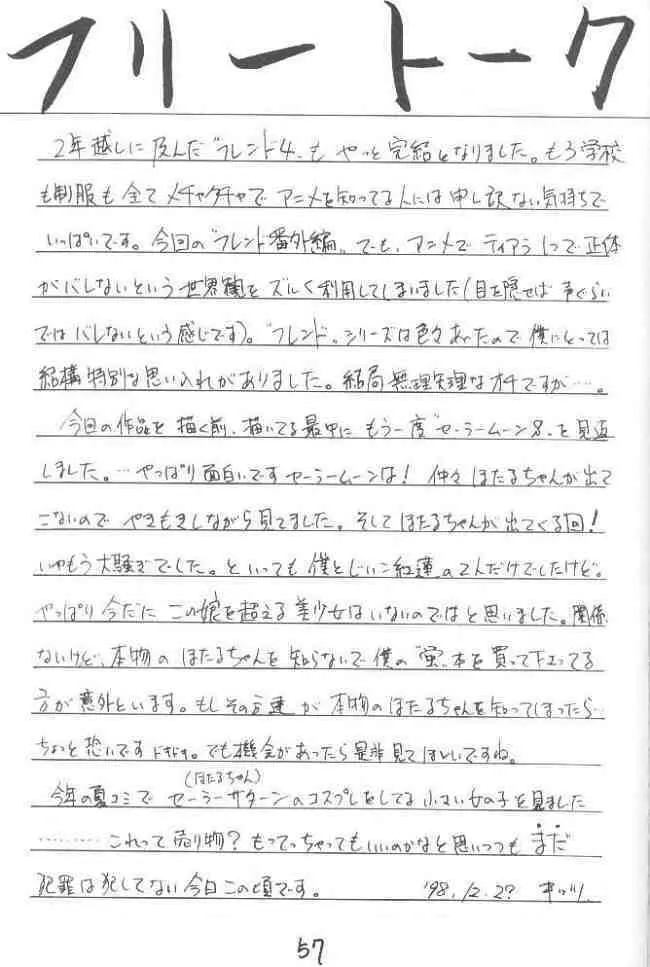 フリートーク
2年越しに及んだ“フレンド4„も やっと完結となりました。もう学校
も制服も全てメチャクチャで アニメを知ってる人には申し訳ない気持ちで
いっぱいです。今回の“フレンド番外編„でも、アニメで ティアラ1つで正体
がバレないという世界観を ズルく利用してしまいました(目を隠せば 声ぐらい
ではバレないという感じです)。“フレンド„シリーズは色々あったので 僕にとっては
結構特別な思い入れがありました。結局無理矢理なオチですが…。
今回の作品を 描く前、描いてる最中に もう一度“セーラームーンS„を見返
しました。…やっぱり面白いですセーラームーンは! 仲々ほたるちゃんが出て
こないので やきもきしながら見てました。そしてほたるちゃんが出てくる回!
いやもう大騒ぎでした。といっても 僕とじいこ紅蓮の2人だけでしたけど。
やっぱり今だに この娘を超える美少女はいないのではと思いました。関係
ないけど、本物の ほたるちゃんを知らないで僕の“蛍„本を買って下さってる
方が意外といます。もしその方達が 本物のほたるちゃんを知ってしまったら…
ちょっと恐いですドキドキ。でも機会があったら是非見てほしいですね。
(ほたるちゃん)
今年の夏コミで セーラーサターンのコスプレをしてる小さい女の子を見ました
………これって売り物? もってっちゃってもいいのかなと思いつつも まだ
犯罪は犯してない今日この頃です。 '98.12.27
57